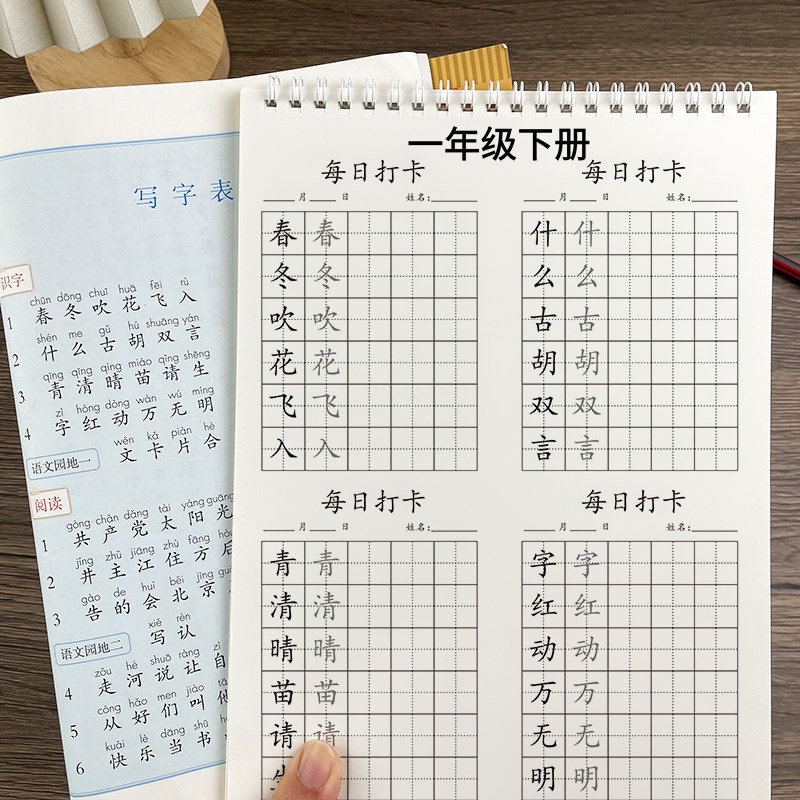 写字表
识字
chūn dōng chuī huā fēi rù
1 春 冬 吹 花 飞 入
shén me gǔ hú shuāng yán
2 什 么 古 胡 双 言
qīng qīng qíng miáo qǐng shēng
3 青 清 晴 苗 请 生
zì hóng dòng wàn wú míng
4 字 红 动 万 无 明
语文园地一
wén kǎ piàn hé
文 卡 片 合
阅读
gòng chǎn dǎng tài yáng guāng
1 共 产 党 太 阳 光
jǐng zhǔ jiāng zhù fāng hòu
2 井 主 江 住 方 后
gào de huì běi jīng
3 告 的 会 北 京
语文园地二
xiě rèn
写 认
zǒu hé shuō ràng zì
4 走 河 说 让 自
cóng hǎo men jiào tā
5 从 好 们 叫 他
kuài lè dāng shū
6 快 乐 当 书
一年级下册
每日打卡
月 日 姓名:
春 春
冬 冬
吹 吹
花 花
飞 飞
入 入
每日打卡
月 日 姓名:
什 什
么 么
古 古
胡 胡
双 双
言 言
每日打卡
月 日 姓名:
青 青
清 清
晴 晴
苗 苗
请 请
每日打卡
月 日 姓名:
字 字
红 红
动 动
万 万
无 无
明 明